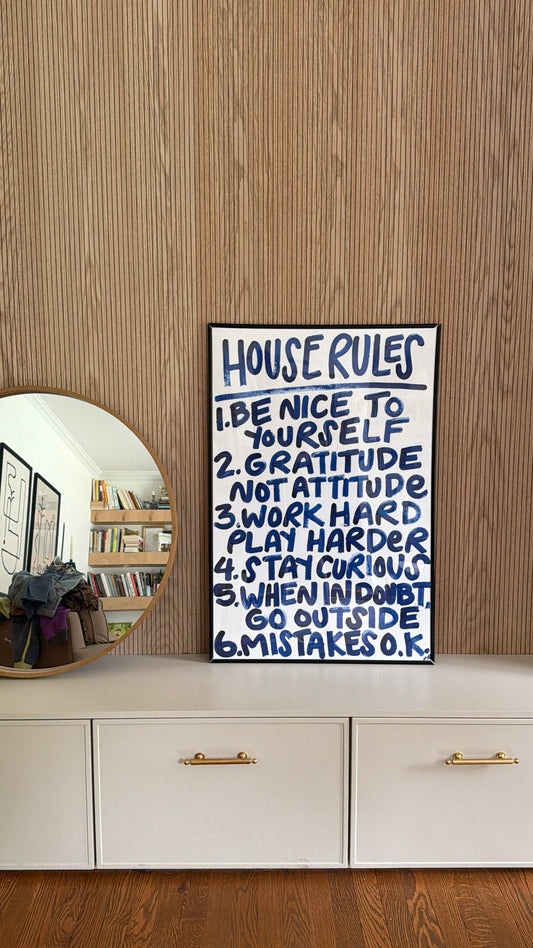 HOUSE RULES
1. BE NICE TO
YOURSELF
2. GRATITUDE
NOT ATTITUDE
3. WORK HARD
PLAY HARDER
4. STAY CURIOUS
5. WHEN IN DOUBT,
GO OUTSIDE
6. MISTAKES O.K.